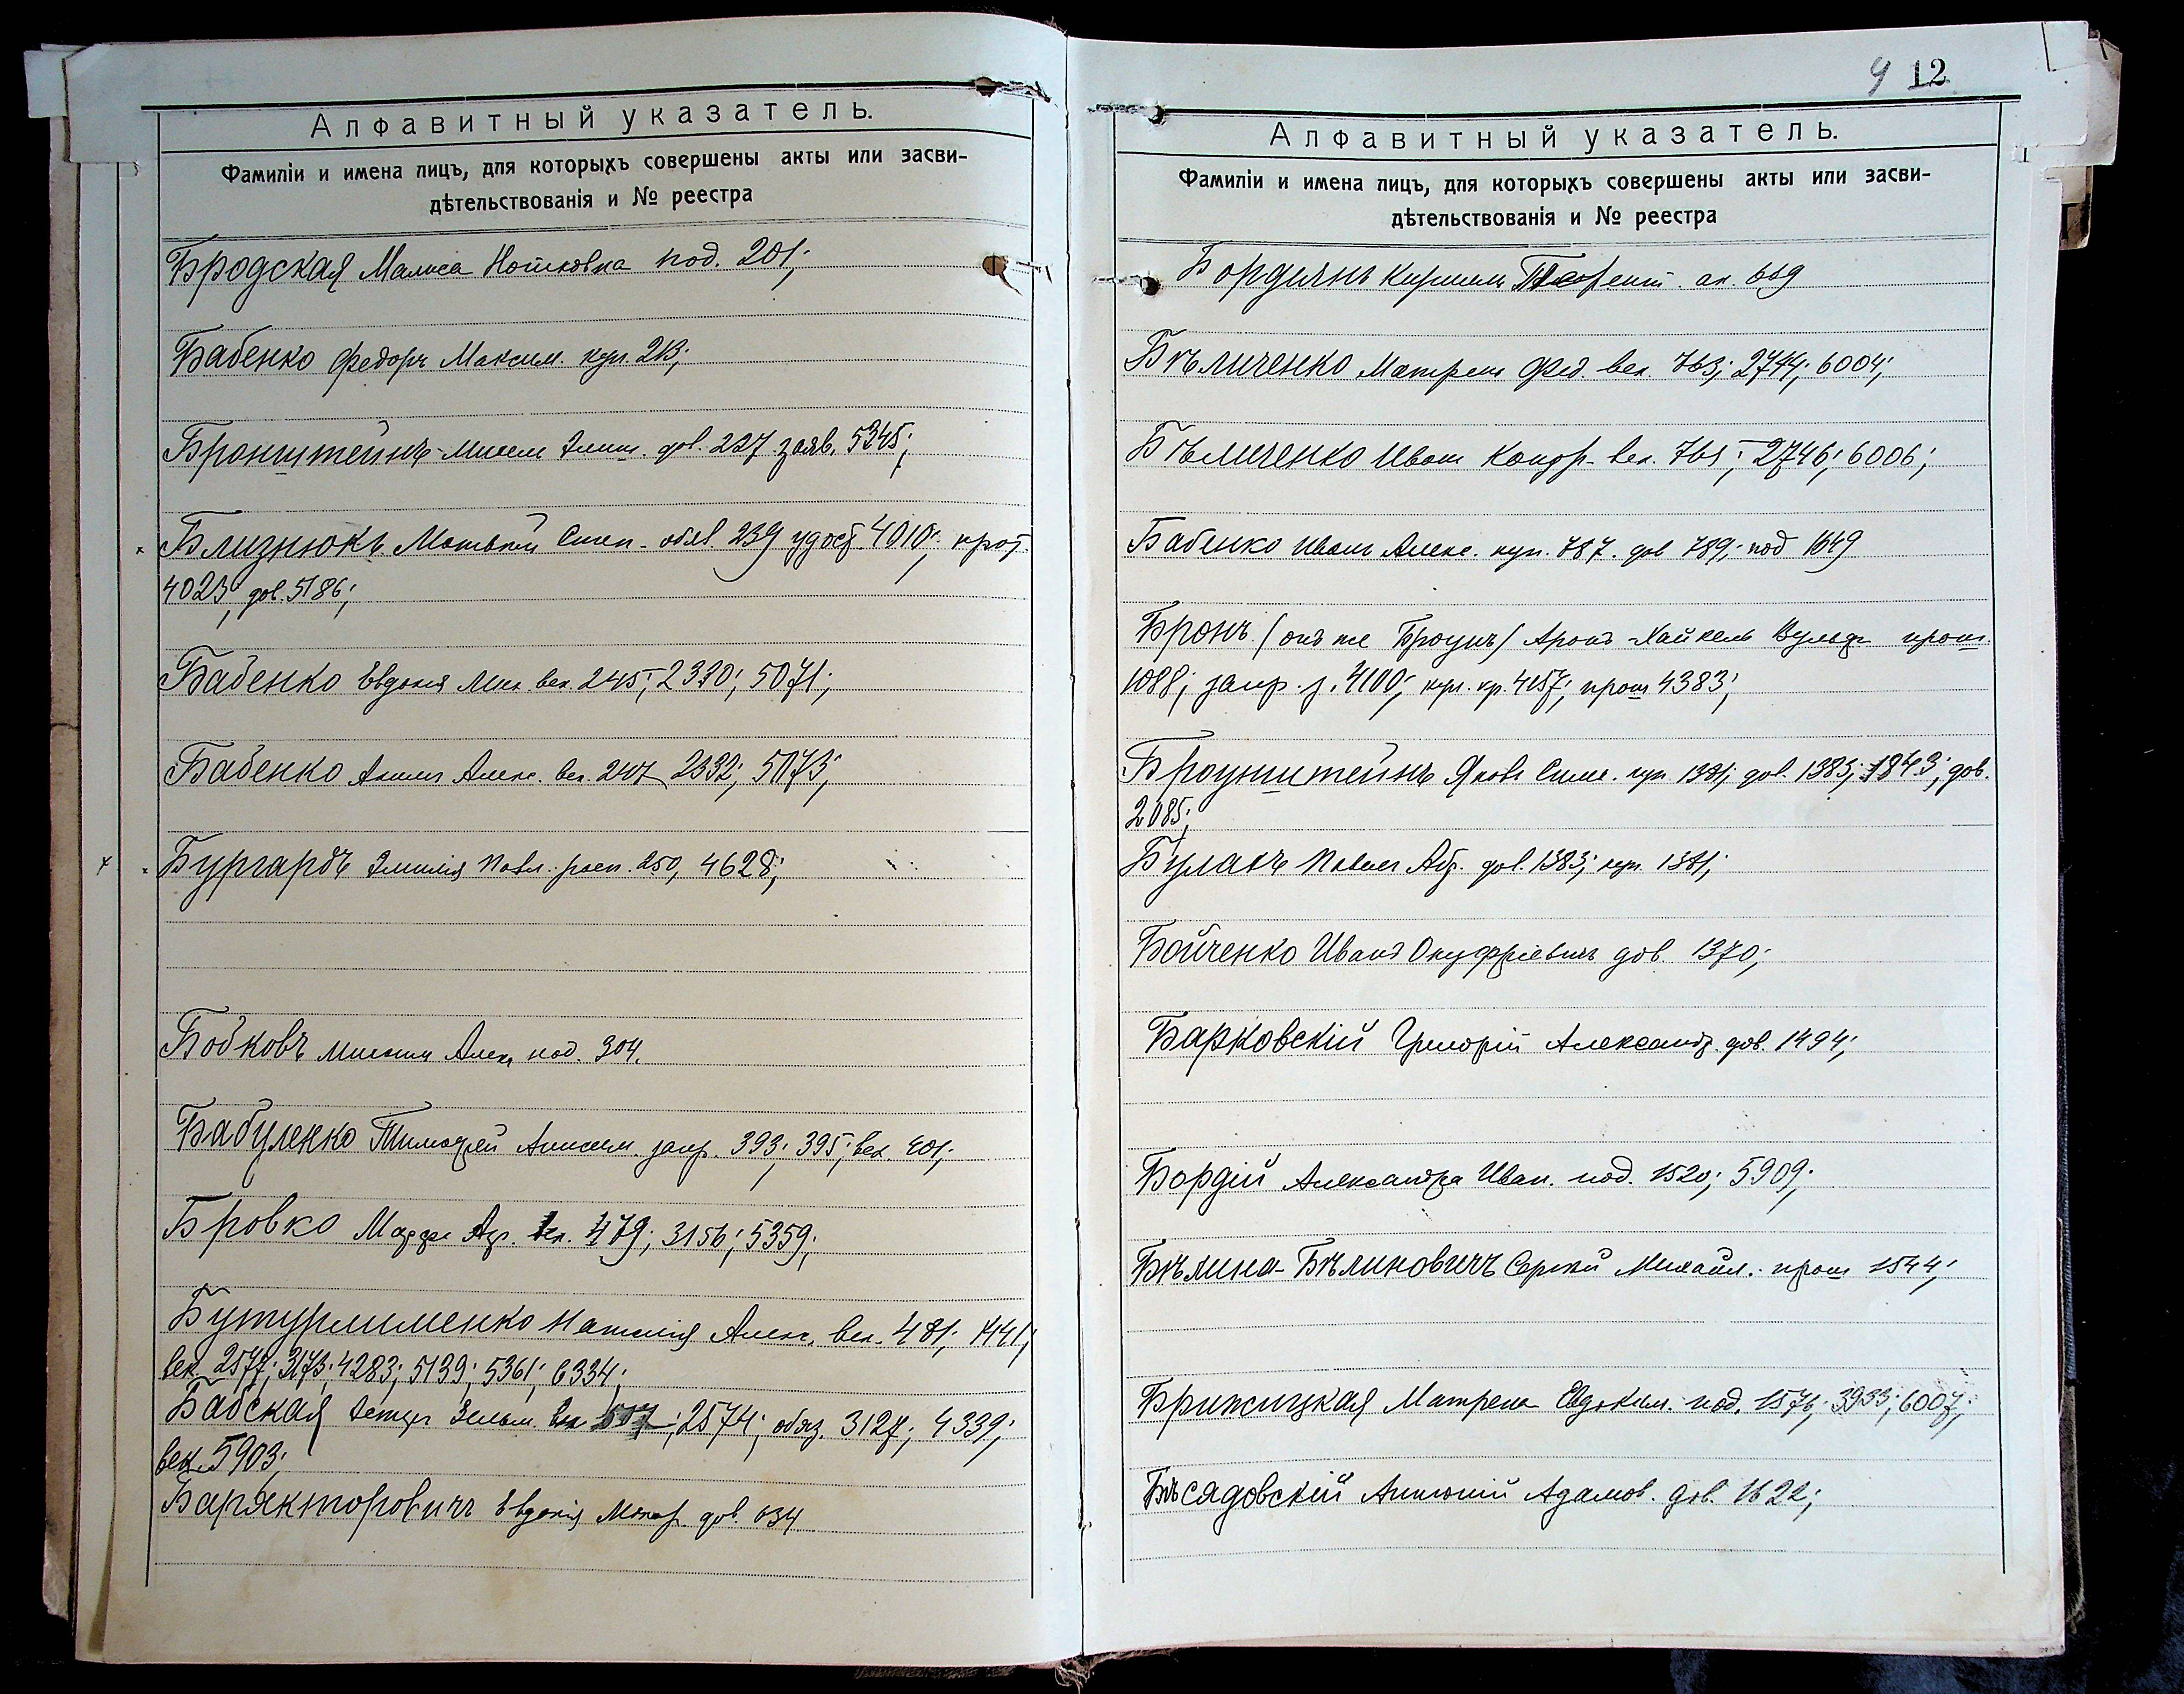 Алфавитный указатель.
Фамиліи и имена лицъ, для которыхъ совершены акты или засви-
дѣтельствованія и № реестра
Бродская Малиса Нотковна под. 201;
Бабенко Федоръ Максим. куп. 213;
Бронштейнъ дов. 227. заяв. 5345;
Близнюкъ Матвѣй Степ. обяз. 239 удост. 4010; прот.
4023; дов. 5186;
Бабенко Евдокія Мих. век. 245; 2330; 5071;
Бабенко Алекс. век. 247 2332; 5073;
Бургардъ Эмилія Павл. расп. 250, 4628;
Бобковъ Алек. под. 304.
Бабуленко Тимофей запр. 393; 395; век. 401;
Бровко Марфа век. 479; 3156; 5359;
Бутурлименко Наталія Алекс. век. 481; 1441;
век. 2577; 3173; 4283; 5139; 5361; 6334;
Бабская Зельм. 2574; обяз. 3127; 4339;
век. 5903;
Барякторовичъ Евдокія Макар. дов. 634
9 12
Алфавитный указатель.
Фамиліи и имена лицъ, для которыхъ совершены акты или засви-
дѣтельствованія и № реестра
Бордіянъ 669
Бѣличенко Матрена Фед. век. 763; 2744; 6004;
Бѣличенко Иванъ Кондр. век. 765; 2746; 6006;
Бабенко Иванъ Алекс. куп. 787. дов 789; под 1649
Бронъ (онъ же Броунъ) Аронъ-Хайкель Вульф. прош.
1088; запр. з. 4100; куп. кр. 4157; прош 4383;
Броунштейнъ Яковъ Симх. куп 1381; дов. 1383; 1843; дов.
2085;
Булахъ Павелъ Абр. дов. 1383; куп. 1381;
Бойченко Иванъ Онуфріевичъ дов. 1370;
Барковскій Григорій Александр. дов. 1494;
Бордій Александра Иван. под. 1520; 5909;
Бѣлина-Бѣлиновичъ Сергѣй Михайл. прош 1544;
Брижицкая Матрена Евдоким. под. 1576; 3933; 6007;
Бѣсядовскій Антоній Адамов. дов. 1622;